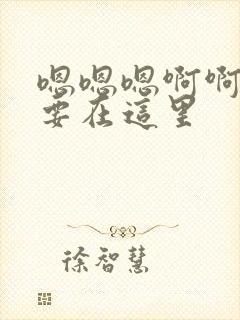 嗯嗯嗯啊啊
要在這里
徐智慧